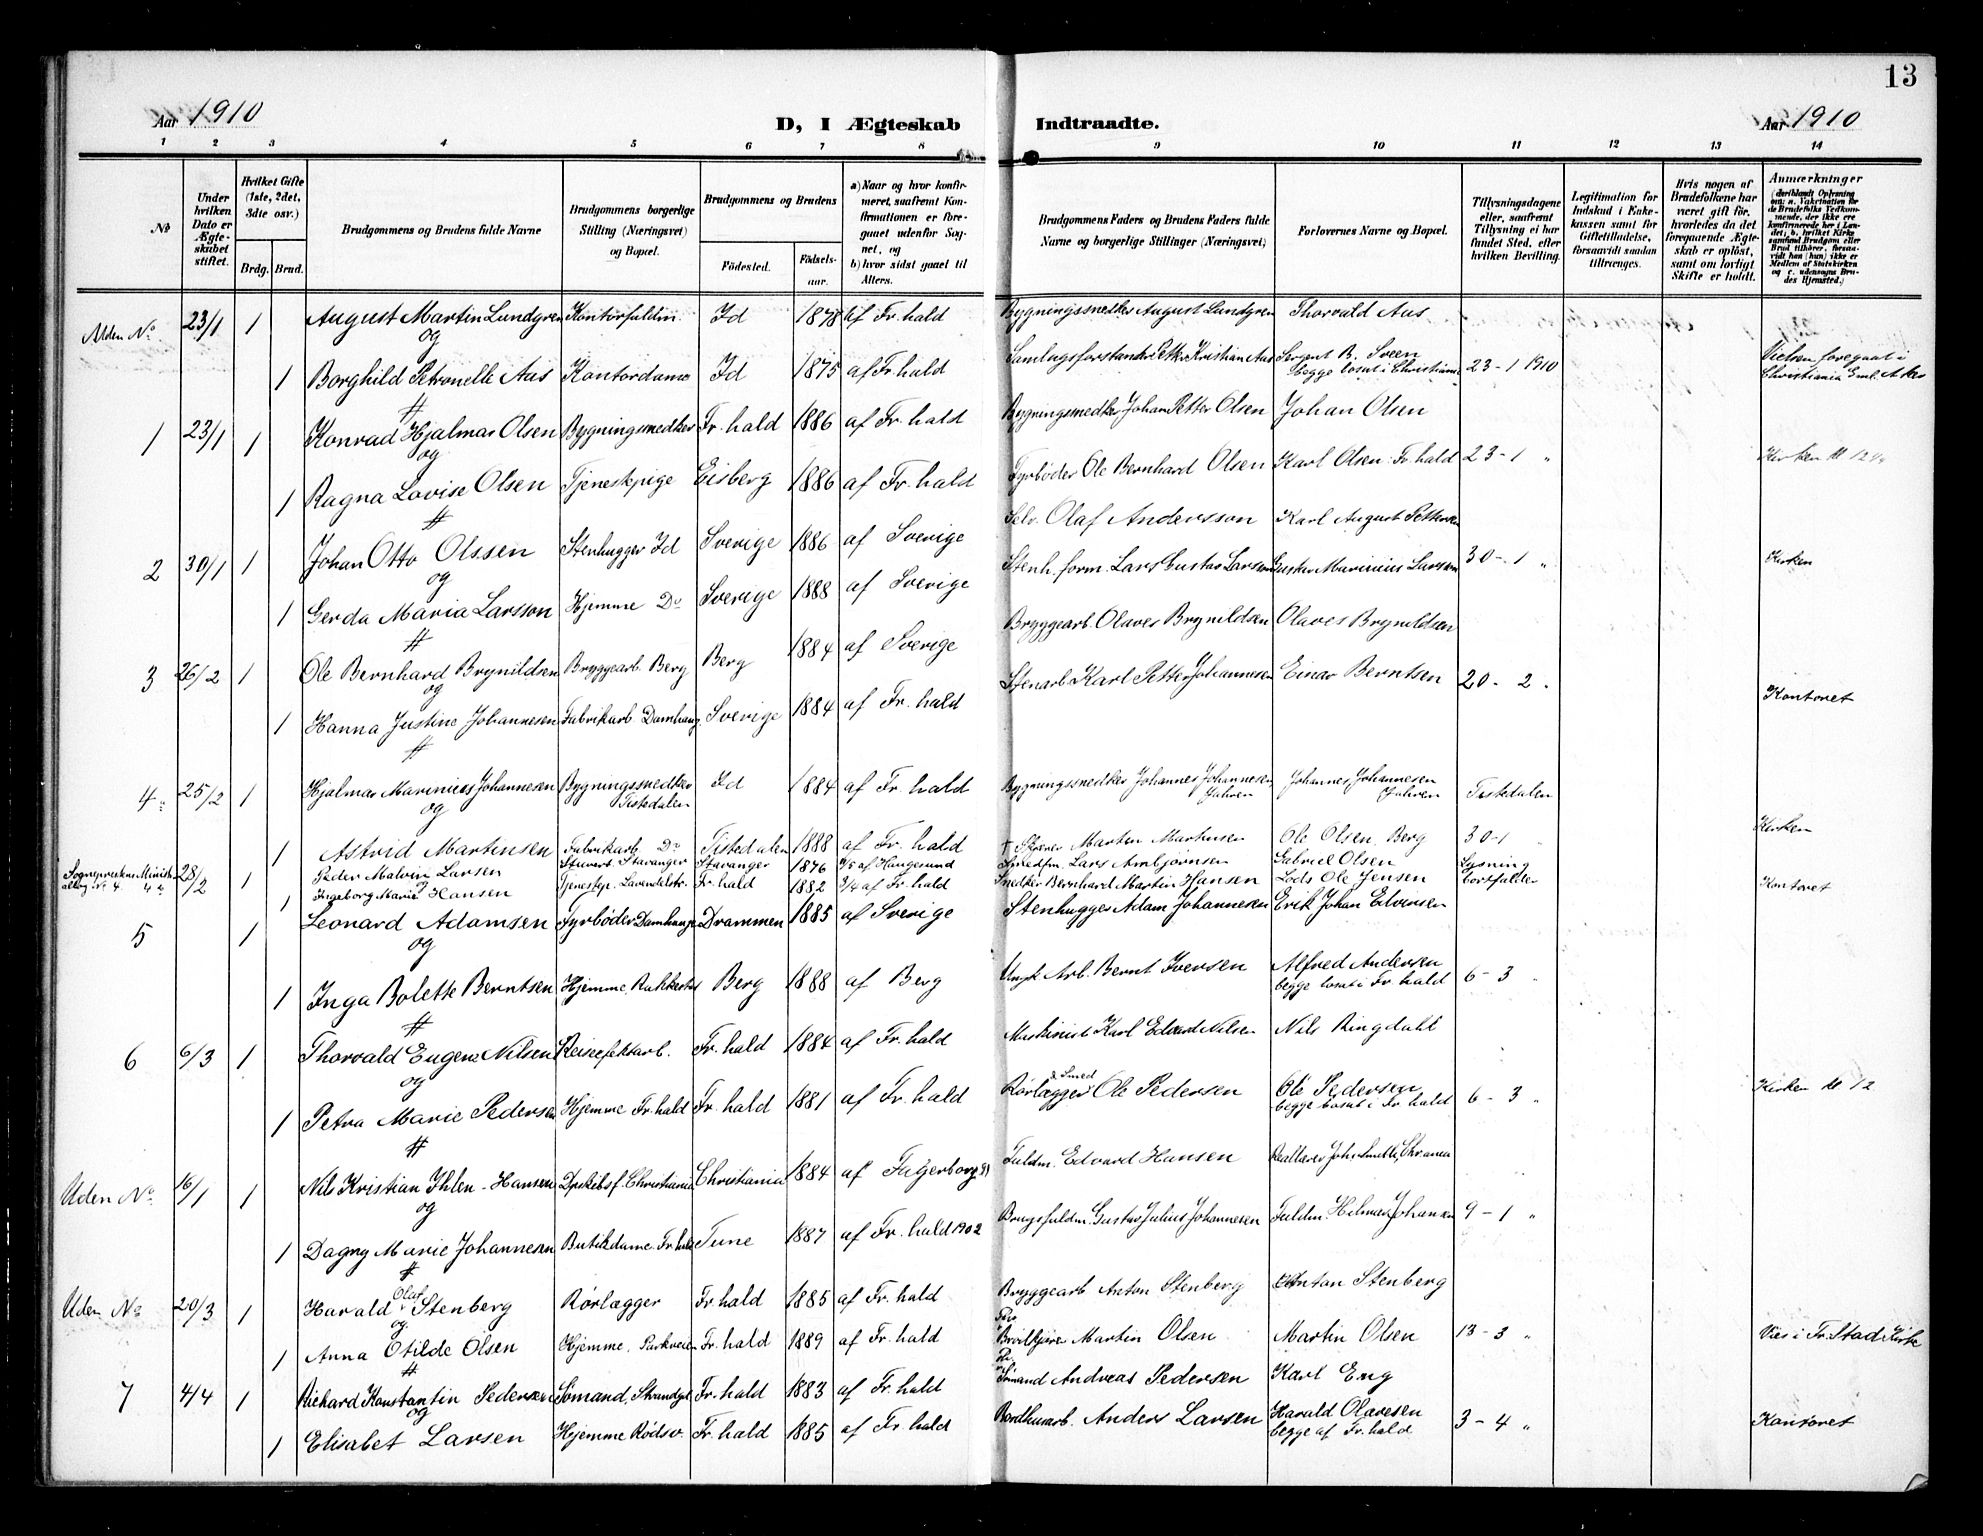 13
Aar 1910
D, I Ægteskab Indtraadte.
Aar 1910
1 2 3 4 5 6 7 8 9 10 11 12 13 14
№
Under hvilken Dato er Ægteskabet stiftet.
Hvilket Gifte (1ste, 2det, 3dte osv.)
Brdg. Brud.
Brudgommens og Brudens fulde Navne
Brudgommens borgerlige Stilling (Næringsvei) og Bopæl.
Brudgommens og Brudens
Fødested.
Fødselsaar.
a) Naar og hvor konfirmeret, saafremt Konfirmationen er foregaaet udenfor Sognet, og
b) hvor sidst gaaet til Alters.
Brudgommens Faders og Brudens Faders fulde Navne og borgerlige Stillinger (Næringsvei)
Forlovernes Navne og Bopæl.
Tillysningsdagene eller, saafremt Tillysning ei har fundet Sted, efter hvilken Bevilling.
Legitimation for Indskud i Enkekassen samt for Giftetilladelse, forsaavidt saadan tiltrænges.
Hvis nogen af Brudefolkene har været gift før, hvorledes da det foregaaende Ægteskab er opløst, samt om lovligt Skifte er holdt.
Anmærkninger
Uden No 23/1 1 August Martin Lundgren Kontorfuldm. Id 1878 af Fr. hald Bygningssnedker August Lundgren Thorvald Aus
og
1 Borghild Petronelle Aus Kontordame Id 1875 af Fr. hald Petter Kristian Aus Sergent B. Sveen begge bosat i Christiania 23-1 1910 Vielsen foregaat i Christiania
1 23/1 1 Konrad Hjalmar Olsen Bygningssnedker Fr. hald 1886 af Fr. hald Bygningssnedker Johan Petter Olsen Johan Olsen
og
1 Ragna Lovise Olsen Tjenestpige Eisberg 1886 af Fr. hald Fyrbøder Ole Bernhard Olsen Karl Olsen Fr. hald 23-1 " Kirken
2 30/1 1 Johan Otto Olssen Stenhugger Id Sverige 1886 af Sverige Selv. Olaf Andersson Karl August Pettersen
og
1 Gerda Maria Larsson Hjemme Do Sverige 1888 af Sverige Stenh. form. Lars Gustav Larsson Gustav Marinius Larsson 30-1 " Kirken
3 26/2 1 Ole Bernhard Brynildsen Bryggearb. Berg Berg 1884 af Sverige Bryggearb. Olaves Brynildsen Olaves Brynildsen
og
1 Hanna Justine Johannesen Fabrikarb. Damhaug Sverige 1884 af Fr. hald Stenarb. Karl Petter Johannesen Einar Berntsen 20-2 " Kontoret
4 25/2 1 Hjalmar Marinius Johannesen Bygningssnedker Tistedalen Id 1884 af Fr. hald Bygningssnedker Johannes Johannesen Johannes Johannesen Tistedalen
og
1 Astrid Martinsen Fabrikarb. Do Tistedalen 1888 af Fr. hald Marten Martinsen Ole Olsen Berg 30-1 Kirken
28/2 Peder Malvin Larsen Stavanger Stavanger 1876 af Haugesund Lars Ambjørnsen Gabriel Olsen Lysning
1 Ingeborg Marie Hansen Tjenestep. Lavendelstr. Fr. hald 1882 af Fr. hald Snedker Bernhard Martin Hansen Lods Ole Jensen bortfalder Kontoret
5 1 Leonard Adamsen Fyrbøder Damhaug Drammen 1885 af Sverige Stenhugger Adam Johannesen Erik Johan Edvinsen
og
1 Inga Bolette Berntsen Hjemme, Bakkestad Berg 1888 af Berg Arb. Bernt Iversen Alfred Andersen begge bosat i Fr. hald 6-3 "
6 6/3 1 Thorvald Eugene Nilsen Reiseefektarb. Fr. hald 1884 af Fr. hald Maskinist Karl Edvard Nilsen Nils Ringdahl
og
1 Petra Marie Pedersen Hjemme Fr. hald Fr. hald 1881 af Fr. hald Rørlægger & Smed Ole Pedersen Ole Pedersen begge bosat i Fr. hald 6-3 " Kirken Kl 12
Uden No 16/1 1 Nils Kristian Ihlen-Hansen Christiania Christiania 1884 af Fagerborg Fuldm. Edvard Hansen
og
1 Dagny Marie Johannesen Butikdame Fr. hald Tune 1887 af Fr. hald 1902 Brugsfuldm. Gustav Julius Johannesen Fuldm. Hilmar Johansen 9-1 "
Uden No 20/3 1 Harald Olaf Stenberg Rørlægger Fr. hald 1885 af Fr. hald Bryggearb Anton Stenberg Anton Stenberg
og
1 Anna Otilde Olsen Hjemme, Parkveien Fr. hald 1889 af Fr. hald Martin Olsen Martin Olsen 13-3 " Vies i Fr. Stad Kirke
7 4/4 1 Richard Konstantin Pedersen Sømand, Strandgt. Fr. hald 1883 af Fr. hald Sømand Andreas Pedersen Karl Eng
og
1 Elisabet Larsen Hjemme Rødsv. Fr. hald 1885 af Fr. hald Anders Larsen Harald Olavesen begge af Fr. hald 3-4 " Kontoret